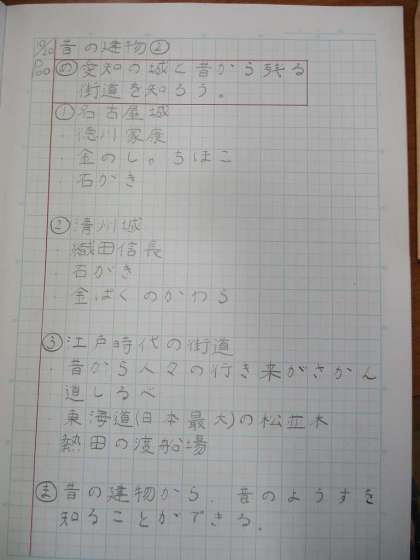 昔の建物②
め 愛知の城と昔から残る
街道を知ろう。
①名古屋城
・徳川家康
・金のしゃちほこ
・石がき
②清川城
・織田信長
・石がき
・金ぱくのかわら
③江戸時代の街道
・昔から人々の行き来がさかん
道しるべ
東海道(日本最大)の松並木
熱田の渡船場
ま 昔の建物から、昔のようすを
知ることができる。